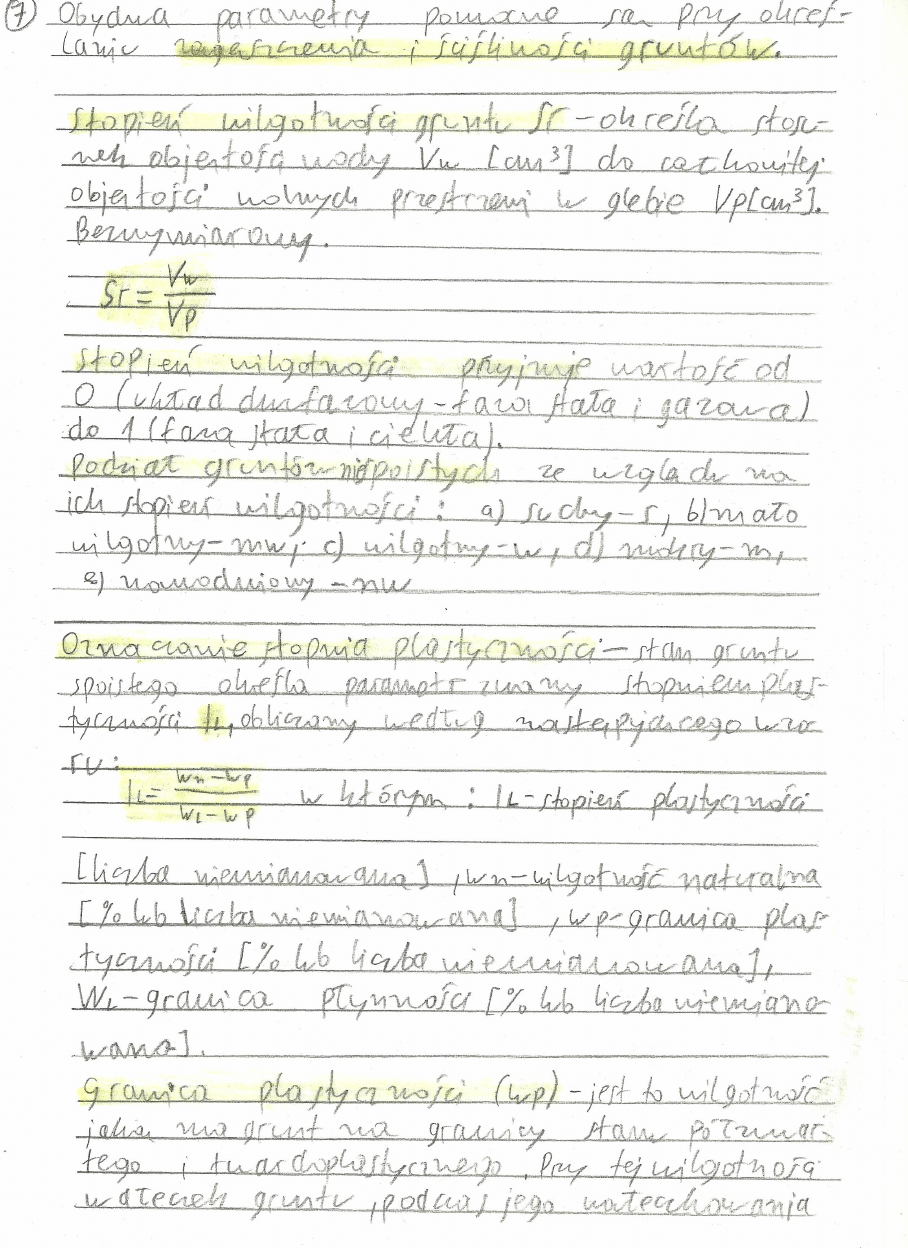 7 Obydwa parametry pomocne są przy okreś-
laniu zagęszczenia i ściśliwości gruntów.
Stopień wilgotności gruntu Sr - określa stosu-
nek objętości wody Vw [cm³] do całkowitej
objętości wolnych przestrzeni w glebie Vp[cm³].
Bezwymiarowy.
Sr = Vw / Vp
Stopień wilgotności przyjmuje wartość od
0 (układ dwufazowy - faza stała i gazowa)
do 1 (faza stała i ciekła).
Podział gruntów niespoistych ze względu na
ich stopień wilgotności: a) suchy - s, b) mało
wilgotny - mw, c) wilgotny - w, d) mokry - m,
e) nawodniony - nw
Oznaczanie stopnia plastyczności - stan gruntu
spoistego określa parametr zwany stopniem plas-
tyczności IL, obliczany według następującego wzo
ru:
IL = wn - wp / wL - wp w którym: IL - stopień plastyczności
[liczba niemianowana], wn - wilgotność naturalna
[% lub liczba niemianowana], wp - granica plas-
tyczności [% lub liczba niemianowana],
WL - granica płynności [% lub liczba niemiano-
wana].
Granica plastyczności (wp) - jest to wilgotność
jaką ma grunt na granicy stanu półzwar-
tego i twardoplastycznego. Przy tej wilgotności
wałeczek gruntu, podczas jego wałeczkowania